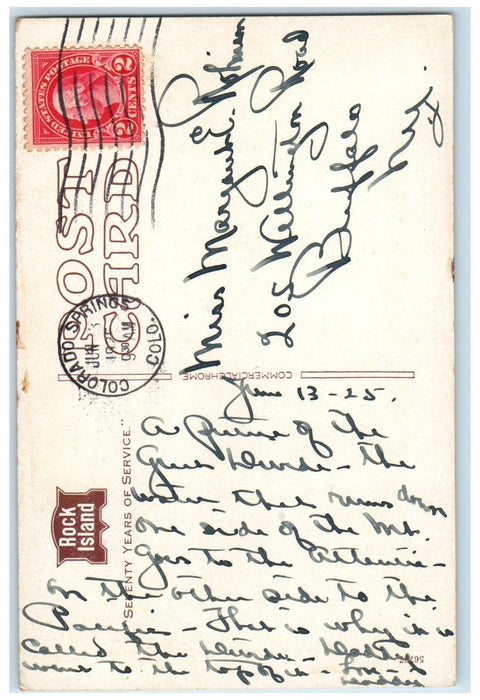 UNITED STATES POSTAGE
2 CENTS 2
POST CARD
COLORADO SPRINGS COLO.
JUN
1925
930 AM
Miss Margaret E. Johnson
205 Wellington Road
Buffalo
N.Y.
COMMERCIALCHROME
Rock Island
"SEVENTY YEARS OF SERVICE."
June 13-25.
A picture of the
Great Divide - the
water that runs down
one side of the Mt.
goes to the Atlantic -
on the other side to the
Pacific - That is why it is
called the Divide - Daddy
went to the top of it - Love